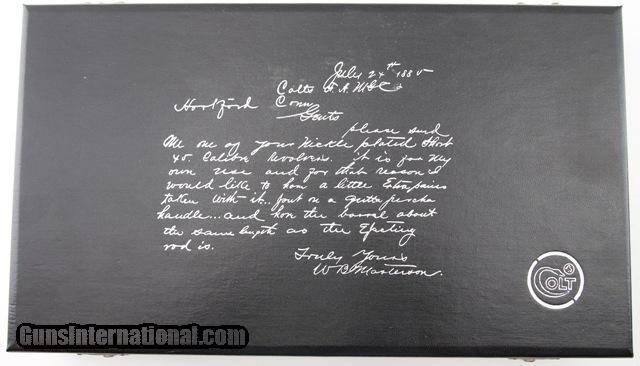 July 24th 1885
Colts F. A. Mfg Co
Hartford Conn
Gents
please send
Me one of your Nickle plated short
45. Calibre Revolvers. it is for my
own use and for that reason I
would like to have a little Extra pains
taken with it... put on a gutta percha
handle... and have the barrel about
the same length as the Ejecting
rod is.
Truly Yours
W B Masterson.
COLT
GunsInternational.com